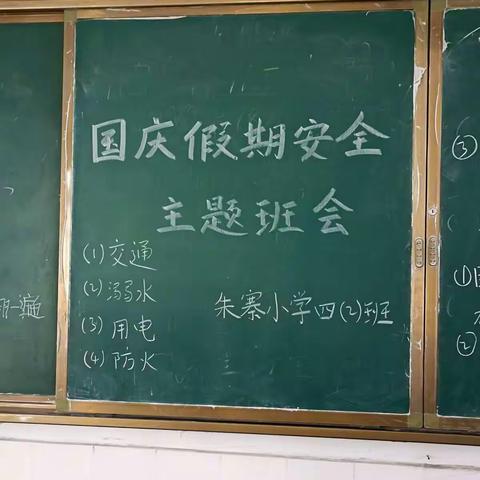 国庆假期安全
主题班会
(1)交通
(2)溺水
(3)用电
(4)防火
朱寨小学四(2)班
一遍
③
①
②